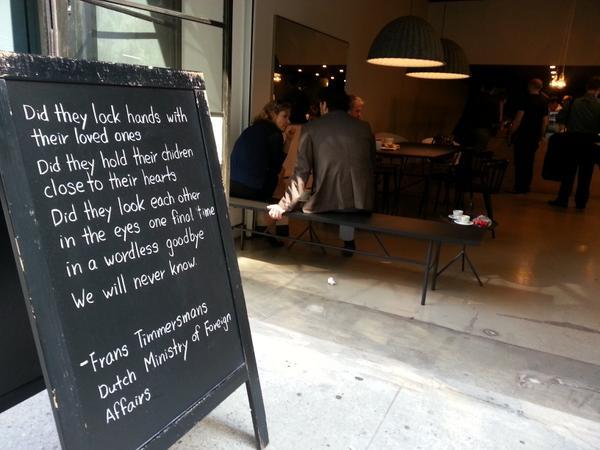 Did they lock hands with
their loved ones
Did they hold their chidren
close to their hearts
Did they look each other
in the eyes one final time
in a wordless goodbye
We will never know.
-Frans Timmersmans
Dutch Ministry of Foreign
Affairs